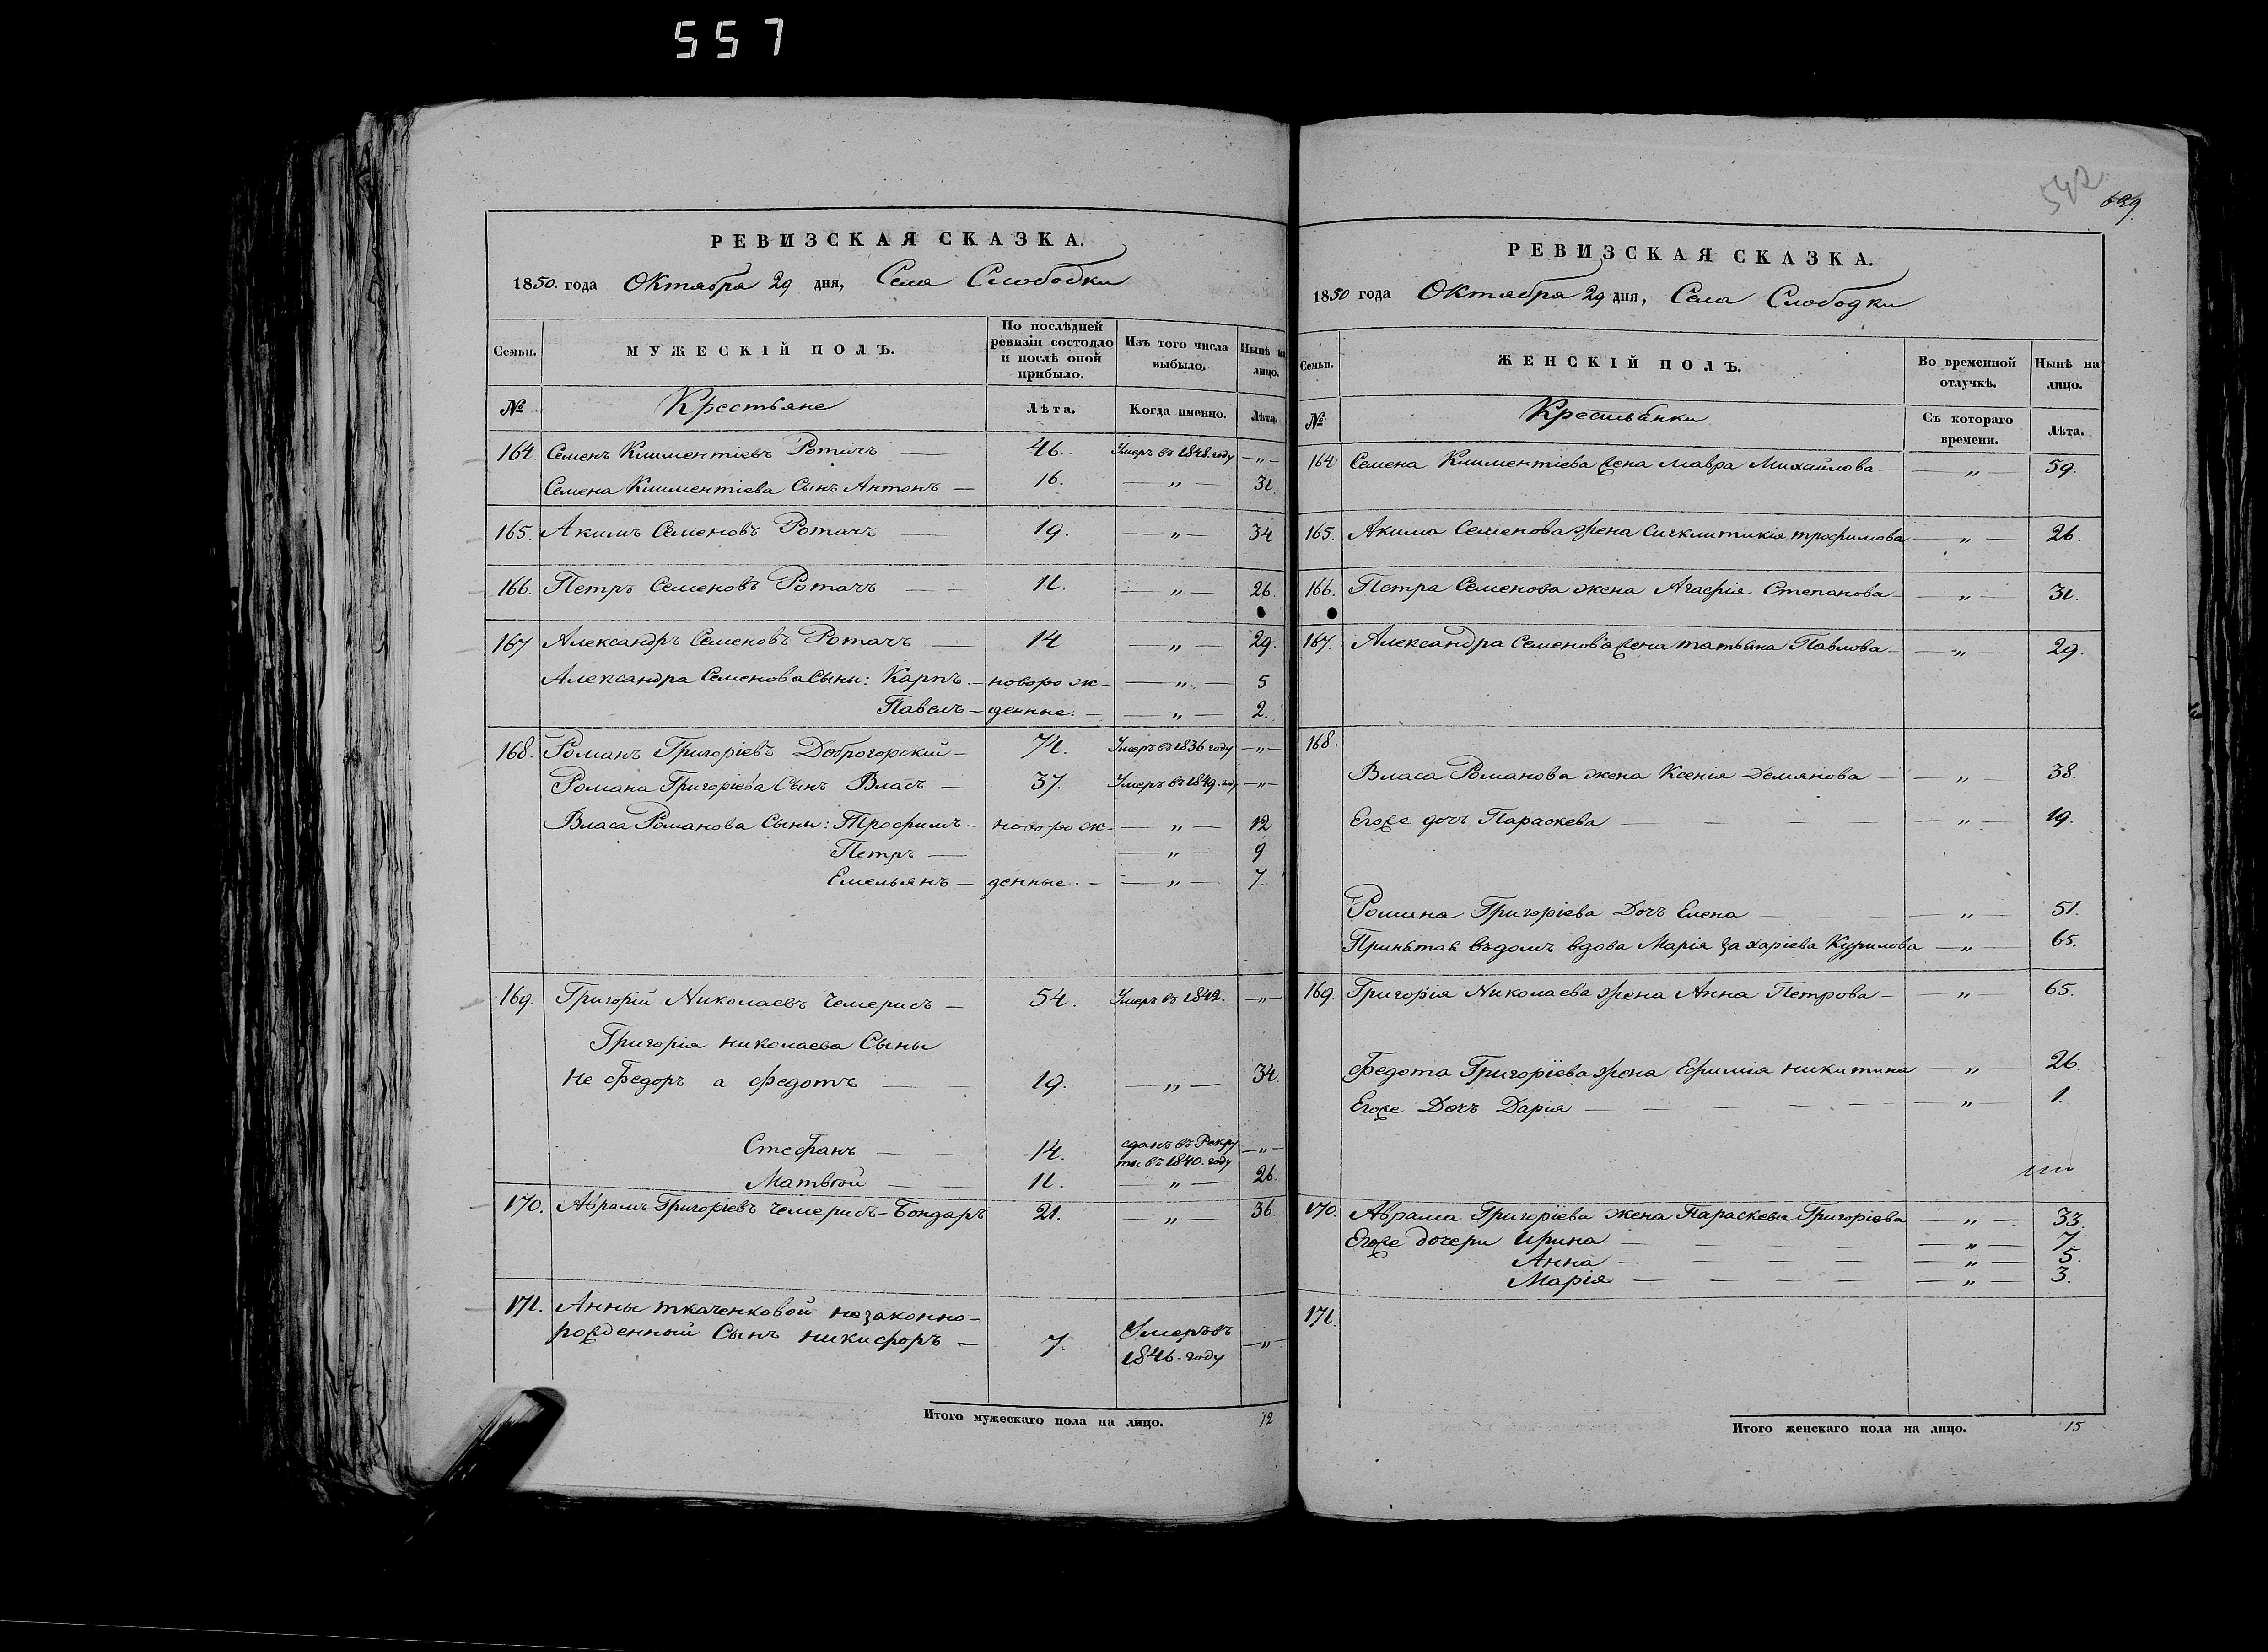 557
РЕВИЗСКАЯ СКАЗКА.
1850. года Октября 29 дня, Села Слободки
Семьи. МУЖЕСКІЙ ПОЛЪ. По послѣдней ревизіи состояло и послѣ оной прибыло. Изъ того числа выбыло. Нынѣ на лицо.
№ Крестьяне Лѣта. Когда именно. Лѣта.
164. Семенъ Климентіевъ Ротачъ — 46. Умеръ въ 1848. году —„—
Семена Климентіева Сынъ Антонъ — 16. —„— 31.
165. Акимъ Семеновъ Ротачъ — 19. —„— 34
166. Петръ Семеновъ Ротачъ — 11. —„— 26.
167 Александръ Семеновъ Ротачъ — 14 —„— 29.
Александра Семенова Сыны: Карпъ. — новорож- —„— 5
Павелъ — денные. — —„— 2.
168. Романъ Григоріевъ Доброгорский — 74. Умеръ въ 1836 году —„—
Романа Григоріева Сынъ Власъ — 37. Умеръ въ 1849. году —„—
Власа Романова Сыны: Трофимъ — новорож- —„— 12
Петръ — —„— 9
Емельянъ — денные. — —„— 7.
169. Григорій Николаевъ Чемерисъ — 54. Умеръ въ 1842. —„—
Григорія николаева Сыны
Не Федоръ а Федотъ — 19. —„— 34.
Стефанъ — 14. сданъ въ Рекру —„—
ты въ 1840. году
Матвѣй — 11. —„— 26.
170. Аврамъ Григоріевъ Чемерисъ-Бондаръ 21. —„— 36.
171. Анны ткаченковой незаконно-
рожденный Сынъ никифоръ — 7. Умеръ въ —„—
1846. году
Итого мужескаго пола на лицо. 12
542
РЕВИЗСКАЯ СКАЗКА.
1850 года Октября 29 дня, Села Слободки
Семьи. ЖЕНСКІЙ ПОЛЪ. Во временной отлучкѣ. Нынѣ на лицо.
№ Крестьянки Съ котораго времени. Лѣта.
164 Семена Климентіева жена Мавра Михайлова — —„— 59.
165. Акима Семенова жена Сигклитикія трофимова —„— 26.
166. Петра Семенова жена Агафія Степанова — —„— 31.
167. Александра Семенова жена татьяна Павлова — —„— 29.
168.
Власа Романова жена Ксенія Демянова — —„— 38.
Егоже дочъ Параскева — —„— 19.
Романа Григоріева Дочъ Елена — —„— 51.
Принятая въ домъ вдова Марія захаріева Курилова —„— 65.
169. Григорія Николаева жена Анна Петрова — —„— 65.
Федота Григоріева жена Ефимія никитина —„— 26.
Егоже Дочъ Дарія — —„— 1.
170. Аврама Григоріева жена Параскева Григоріева —„— 33.
Егоже дочери Ирина — —„— 7.
Анна — —„— 5.
Марія — —„— 3.
171.
Итого женскаго пола на лицо. 15